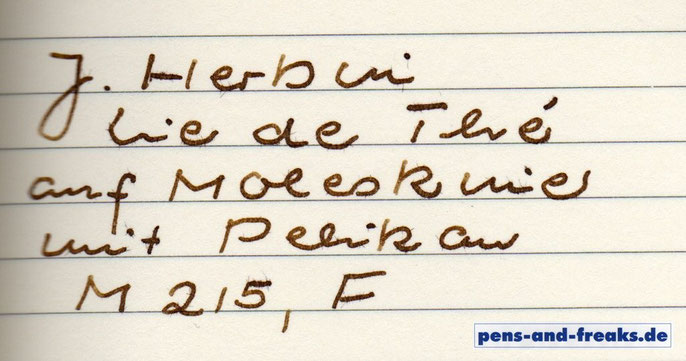 J. Herbin
Lie de Thé
auf Moleskine
mit Pelikan
M 215, F
pens-and-freaks.de